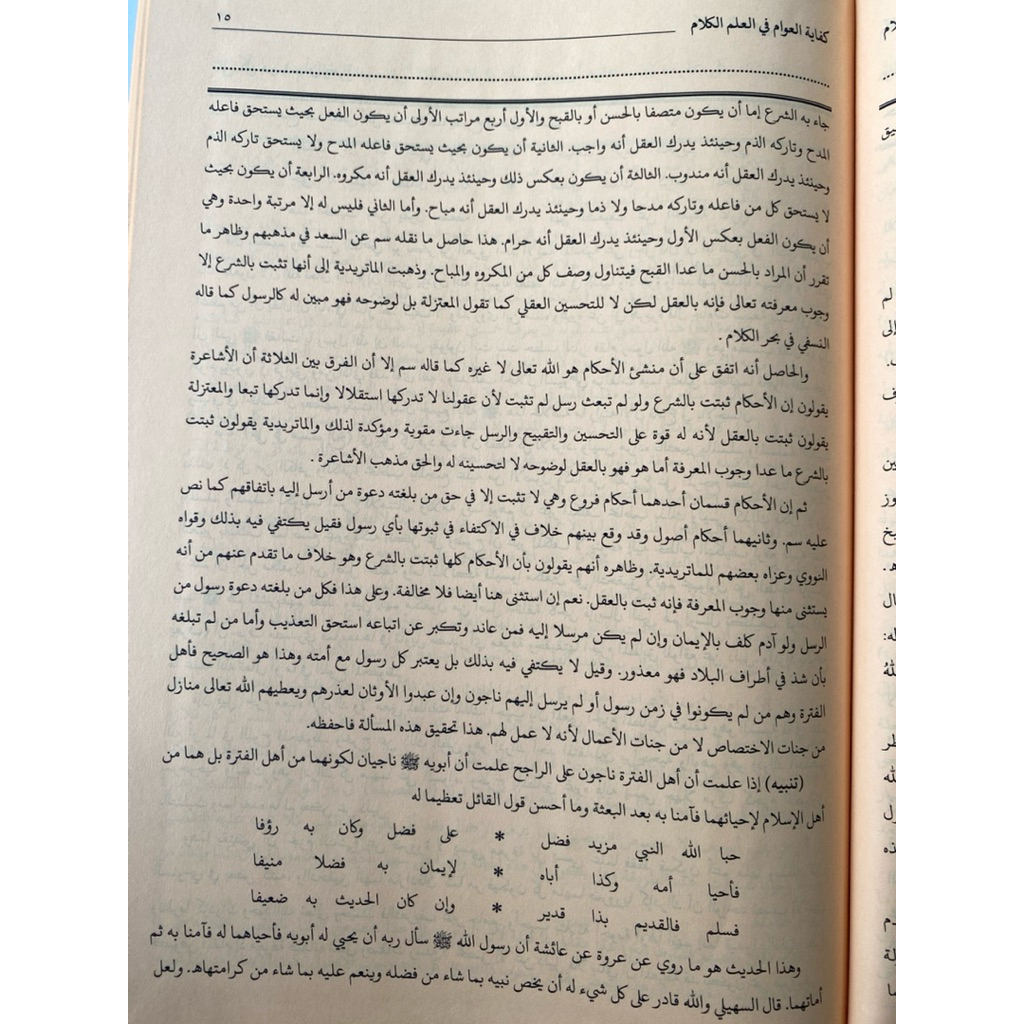 كفاية العوام في العلم الكلام
١٥
جاء به الشرع إما أن يكون متصفا بالحسن أو بالقبح والأول أربع مراتب الأولى أن يكون الفعل بحيث يستحق فاعله
المدح وتاركه الذم وحينئذ يدرك العقل أنه واجب. الثانية أن يكون بحيث يستحق فاعله المدح ولا يستحق تاركه الذم
وحينئذ يدرك العقل أنه مندوب. الثالثة أن يكون بعكس ذلك وحينئذ يدرك العقل أنه مكروه. الرابعة أن يكون بحيث
لا يستحق كل من فاعله وتاركه مدحا ولا ذما وحينئذ يدرك العقل أنه مباح. وأما الثاني فليس له إلا مرتبة واحدة وهي
أن يكون الفعل بعكس الأول وحينئذ يدرك العقل أنه حرام. هذا حاصل ما نقله سم عن السعد في مذهبهم وظاهر ما
تقرر أن المراد بالحسن ما عدا القبح فيتناول وصف كل من المكروه والمباح. وذهبت الماتريدية إلى أنها تثبت بالشرع إلا
وجوب معرفته تعالى فإنه بالعقل لكن لا للتحسين العقلي كما تقول المعتزلة بل لوضوحه فهو مبين له كالرسول كما قاله
النسفي في بحر الكلام .
والحاصل أنه اتفق على أن منشئ الأحكام هو الله تعالى لا غيره كما قاله سم إلا أن الفرق بين الثلاثة أن الأشاعرة
يقولون إن الأحكام ثبتت بالشرع ولو لم تبعث رسل لم تثبت لأن عقولنا لا تدركها استقلالا وإنما تدركها تبعا والمعتزلة
يقولون ثبتت بالعقل لأنه له قوة على التحسين والتقبيح والرسل جاءت مقوية ومؤكدة لذلك والماتريدية يقولون ثبتت
بالشرع ما عدا وجوب المعرفة أما هو فهو بالعقل لوضوحه لا لتحسينه له والحق مذهب الأشاعرة .
ثم إن الأحكام قسمان أحدهما أحكام فروع وهي لا تثبت إلا في حق من بلغته دعوة من أرسل إليه باتفاقهم كما نص
عليه سم. وثانيهما أحكام أصول وقد وقع بينهم خلاف في الاكتفاء في ثبوتها بأي رسول فقيل يكتفي فيه بذلك وقواه
النووي وعزاه بعضهم للماتريدية. وظاهره أنهم يقولون بأن الأحكام كلها ثبتت بالشرع وهو خلاف ما تقدم عنهم من أنه
يستثنى منها وجوب المعرفة فإنه ثبت بالعقل. نعم إن استثنى هنا أيضا فلا مخالفة. وعلى هذا فكل من بلغته دعوة رسول من
الرسل ولو آدم كلف بالإيمان وإن لم يكن مرسلا إليه فمن عاند وتكبر عن اتباعه استحق التعذيب وأما من لم تبلغه
بأن شذ في أطراف البلاد فهو معذور. وقيل لا يكتفي فيه بذلك بل يعتبر كل رسول مع أمته وهذا هو الصحيح فأهل
الفترة وهم من لم يكونوا في زمن رسول أو لم يرسل إليهم ناجون وإن عبدوا الأوثان لعذرهم ويعطيهم الله تعالى منازل
من جنات الاختصاص لا من جنات الأعمال لأنه لا عمل لهم. هذا تحقيق هذه المسألة فاحفظه.
(تنبيه) إذا علمت أن أهل الفترة ناجون على الراجح علمت أن أبويه ﷺ ناجيان لكونهما من أهل الفترة بل هما من
أهل الإسلام لإحيائهما فآمنا به بعد البعثة وما أحسن قول القائل تعظيما له
حبا الله النبي مزيد فضل * على فضل وكان به رؤفا
فأحيا أمه وكذا أباه * لإيمان به فضلا منيفا
فسلم فالقديم بذا قدير * وإن كان الحديث به ضعيفا
وهذا الحديث هو ما روي عن عروة عن عائشة أن رسول الله ﷺ سأل ربه أن يحيي له أبويه فأحياهما له فآمنا به ثم
أماتهما. قال السهيلي والله قادر على كل شيء له أن يخص نبيه بما شاء من فضله وينعم عليه بما شاء من كرامتهاهـ. ولعل